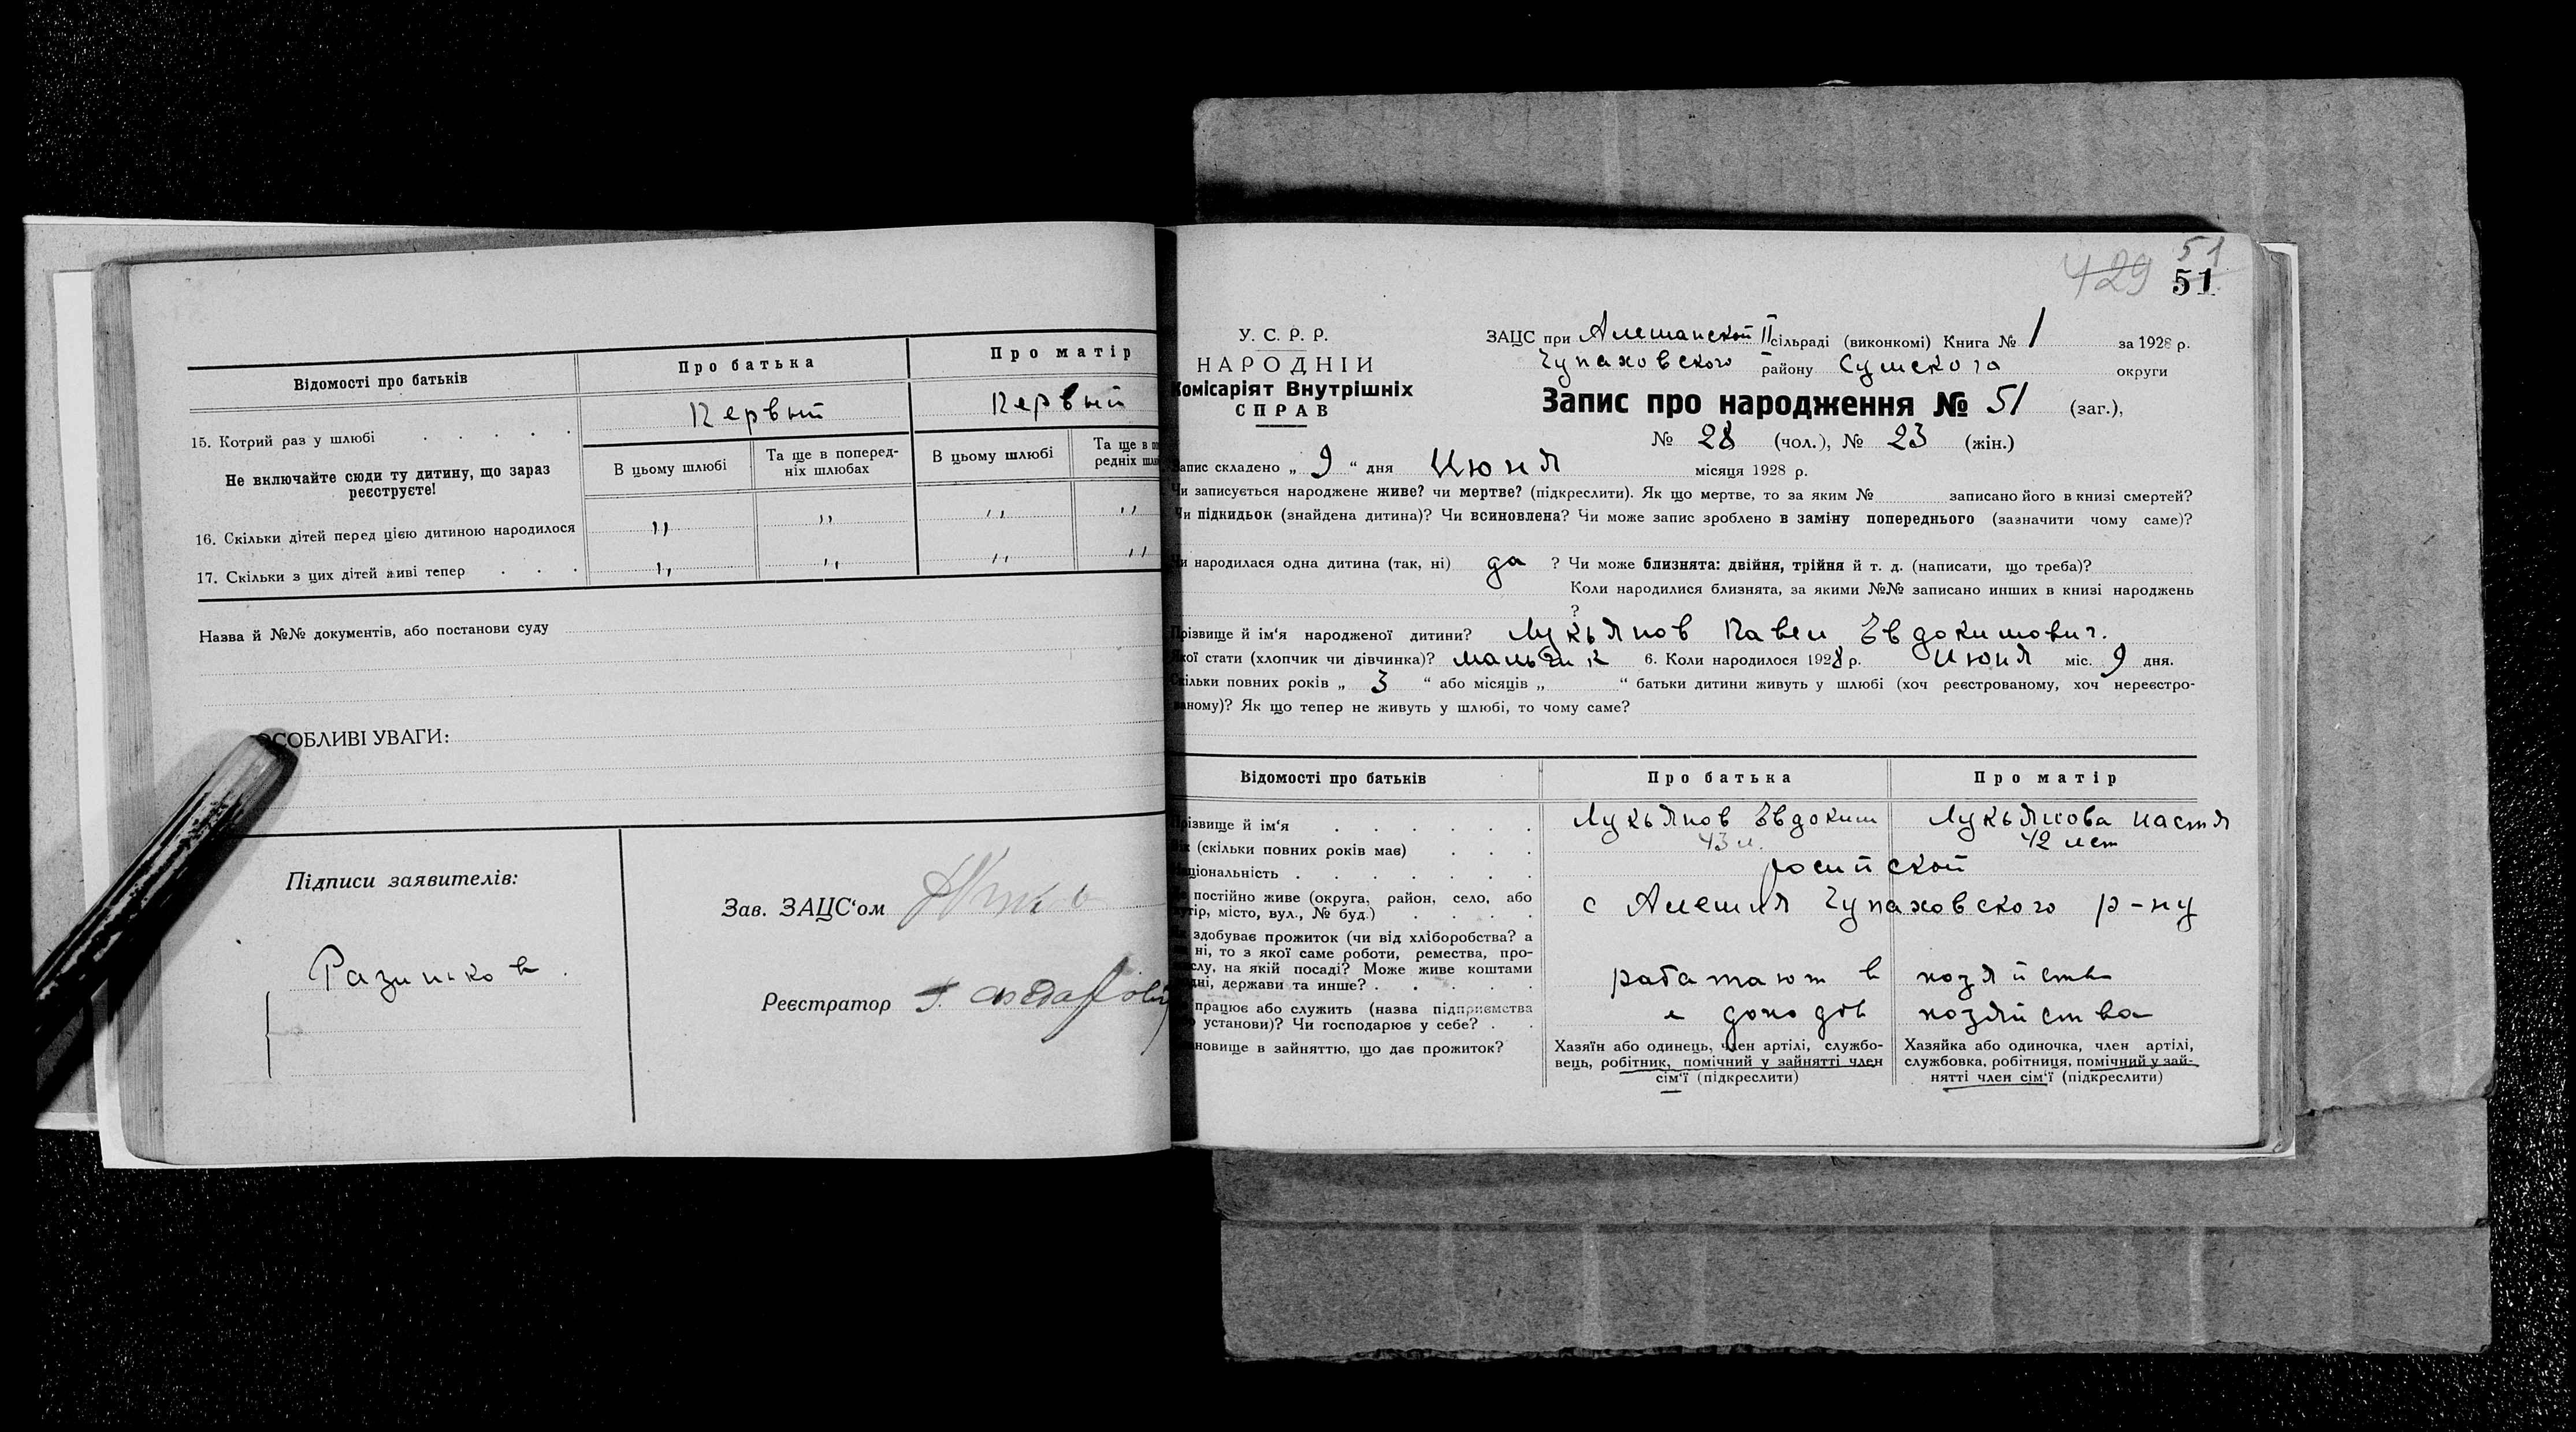 Відомості про батьків
Про батька
Про матір
15. Котрий раз у шлюбі . . . . .
Первый
Первый
Не включайте сюди ту дитину, що зараз реєструєте!
В цьому шлюбі
Та ще в поперед-
ніх шлюбах
В цьому шлюбі
Та ще в по
редніх шлю
16. Скільки дітей перед цією дитиною народилося
" " " "
17. Скільки з цих дітей живі тепер . . .
" " " "
Назва й №№ документів, або постанови суду
ОСОБЛИВІ УВАГИ:
Підписи заявителів:
Разиньков.
Зав. ЗАЦС'ом
Реєстратор
429 51
51
У. С. Р. Р.
НАРОДНІЙ
Комісаріят Внутрішніх
СПРАВ
ЗАЦС при Алешанской II сільраді (виконкомі) Книга № 1 за 1928 р.
Чупаховского району Сумского округи
Запис про народження № 51 (заг.),
№ 28 (чол.), № 23 (жін.)
Запис складено „ 9 “ дня Июня місяця 1928 р.
Чи записується народжене живе? чи мертве? (підкреслити). Як що мертве, то за яким № записано його в книзі смертей?
Чи підкидьок (знайдена дитина)? Чи всиновлена? Чи може запис зроблено в заміну попереднього (зазначити чому саме)?
Чи народилася одна дитина (так, ні) да ? Чи може близнята: двійня, трійня й т. д. (написати, що треба)?
Коли народилися близнята, за якими №№ записано инших в книзі народжень
?
Прізвище й ім'я народженої дитини? Лукьянов Павел Евдокимович.
Якої стати (хлопчик чи дівчинка)? мальчик 6. Коли народилося 1928 р. Июня міс. 9 дня.
Скільки повних років „ 3 “ або місяців „ “ батьки дитини живуть у шлюбі (хоч реєстрованому, хоч нереєстро-
ваному)? Як що тепер не живуть у шлюбі, то чому саме?
Відомості про батьків
Про батька
Про матір
Прізвище й ім'я . . . . . .
Лукьянов Евдоким
Лукьянова Настя
Вік (скільки повних років має) . . .
43 л.
42 лет
Національність . . . . . . .
росийской
постійно живе (округа, район, село, або
хутір, місто, вул., № буд.) . . . .
с Алешня Чупаховского р-ну
здобуває прожиток (чи від хліборобства? а
ні, то з якої саме роботи, ремества, про-
слу, на якій посаді? Може живе коштами
рідні, держави та инше? . . . . .
работают в хозяйстве
працює або служить (назва підприємства
установи)? Чи господарює у себе? . .
доходов хозяйства
Становище в зайняттю, що дає прожиток?
Хазяїн або одинець, член артілі, службо-
вець, робітник, помічний у зайнятті член
сім'ї (підкреслити)
Хазяйка або одиночка, член артілі,
службовка, робітниця, помічний у зай-
нятті член сім'ї (підкреслити)